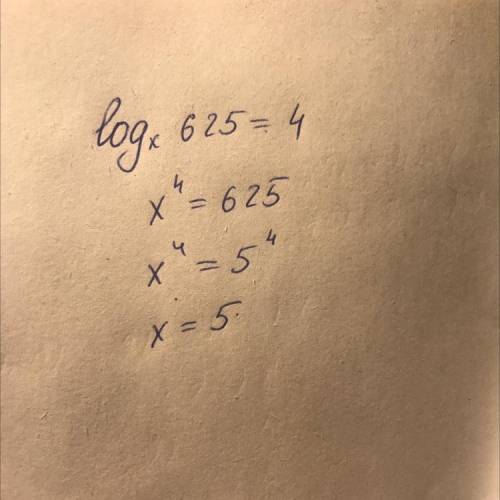 logₓ 625 = 4
x⁴ = 625
x⁴ = 5⁴
x = 5